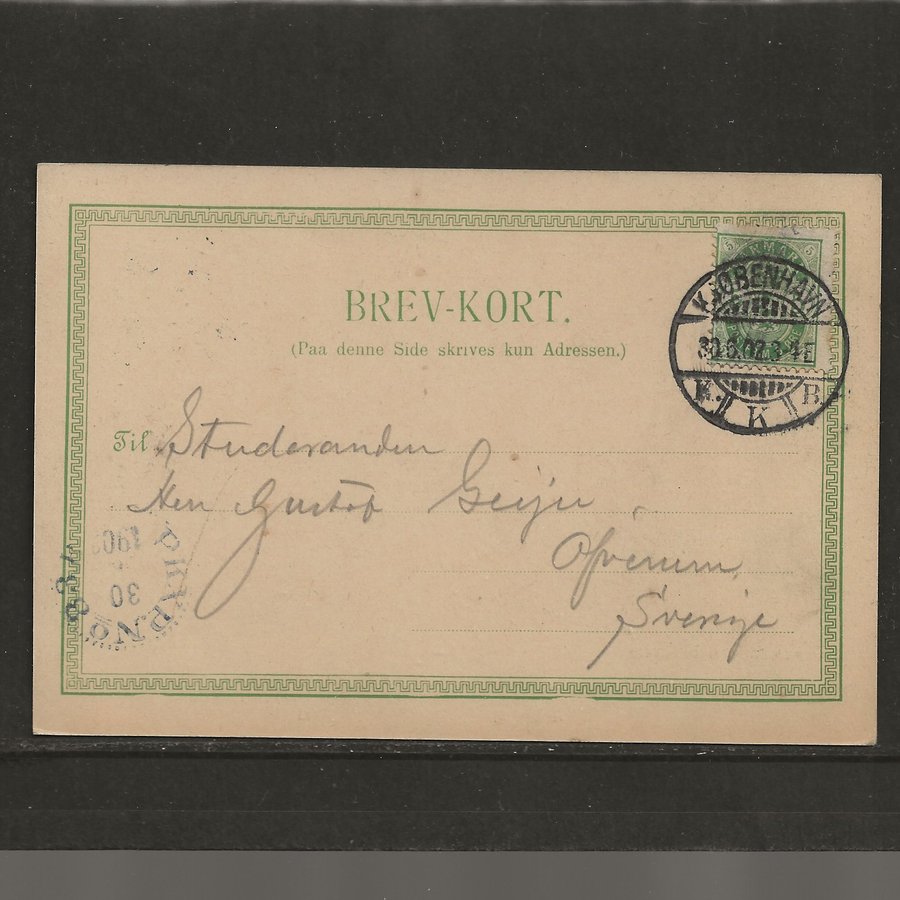 BREV-KORT.
(Paa denne Side skrives kun Adressen.)
5 DANMARK 5
KJØBENHAVN
30.6.02.3-4E
K. K B.
Til Studeranden
Herr Gustaf Geijer
Öfverum
Sverige
PKXP.Nº 83A
30
190